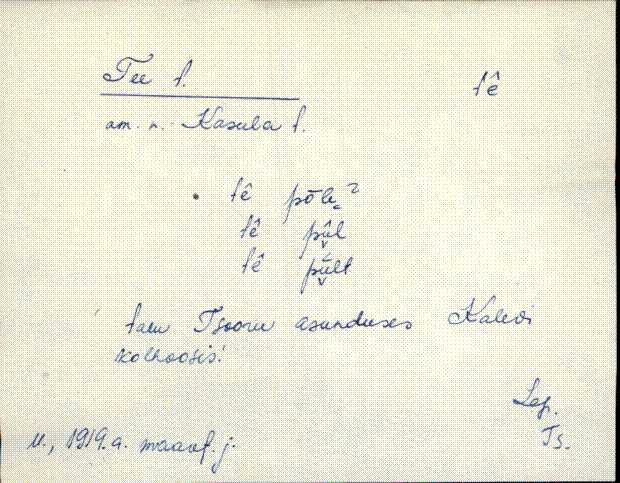 Tee t.
tê
am. n. Kasula t.
tê põle ˀ
tê pŭ̬l
tê pŭ̬lt
talu Tsooru asunduses Kalevi
kolhoosis.
Lep.
Ts.
U., 1919. a. maavl. j.